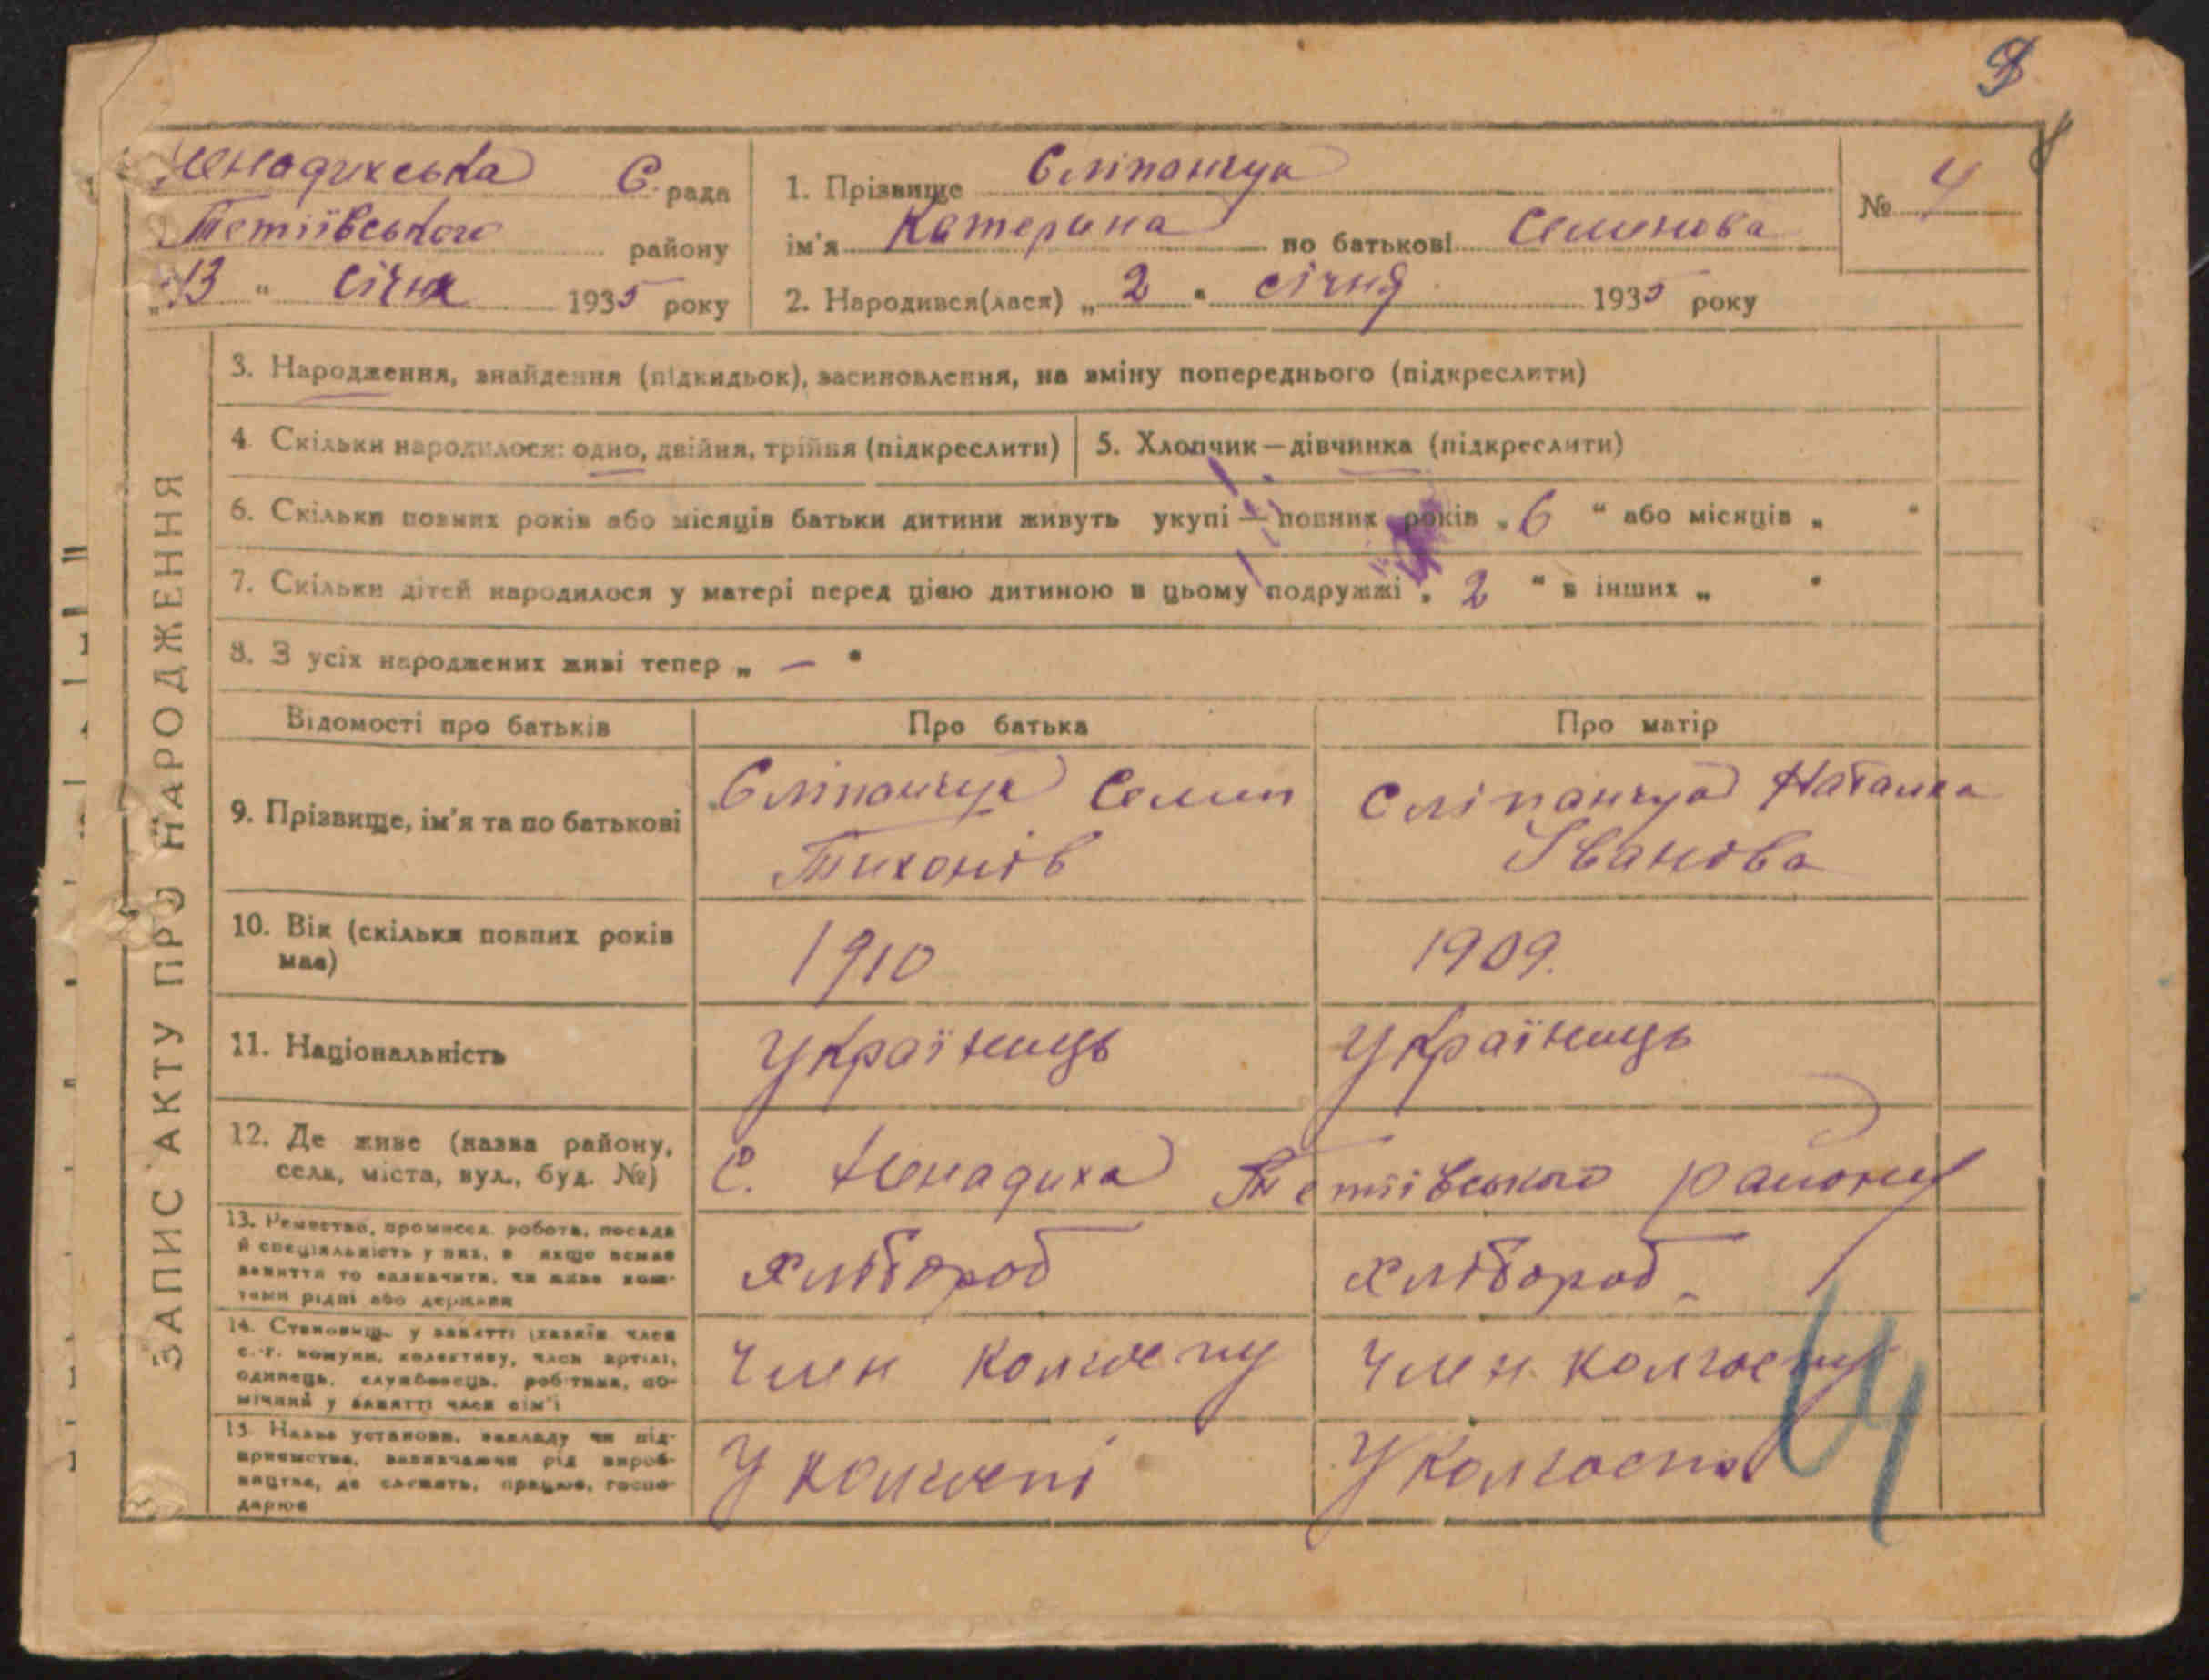 Ненадихська С. рада
Тетіївського району
„13 " січня 1935 року
1. Прізвище Сліпанчук
ім'я Катерина по батькові Семенова
№ 4
2. Народився(лася) „2 " січня 1935 року
ЗАПИС АКТУ ПРО НАРОДЖЕННЯ
3. Народження, знайдення (підкидьок), засиновлення, на зміну попереднього (підкреслити)
4. Скільки народилося: одно, двійня, трійня (підкреслити)
5. Хлопчик—дівчинка (підкреслити)
6. Скільки повних років або місяців батьки дитини живуть укупі — повних років „6 " або місяців „ "
7. Скільки дітей народилося у матері перед цією дитиною в цьому подружжі „2 " в інших „ "
8. З усіх народжених живі тепер „ — "
Відомості про батьків
Про батька
Про матір
9. Прізвище, ім'я та по батькові
Сліпанчук Семен
Тихонів
Сліпанчук Наталка
Іванова
10. Вік (скільки повних років
має)
1910
1909.
11. Національність
Українець
Українець
12. Де живе (назва району,
села, міста, вул., буд. №)
С. Ненадиха Тетіївського району
13. Ремество, промисел, робота, посада
й спеціяльність у них, а якщо немає
заняття то зазначити, чи живе кош-
тами рідні або держави
хлібороб
хлібороб
14. Становищ. у занятті (хазяїн член
с.-г. комуни, колективу, член артілі,
одинець, службовець, робітник, по-
мічний у занятті член сім'ї
Член колгоспу
Член колгоспу
15. Назва установи, закладу чи під-
приємства, зазначаючи рід вироб-
ництва, де служить, працює, госпо-
дарює
У колгоспі
У колгоспі